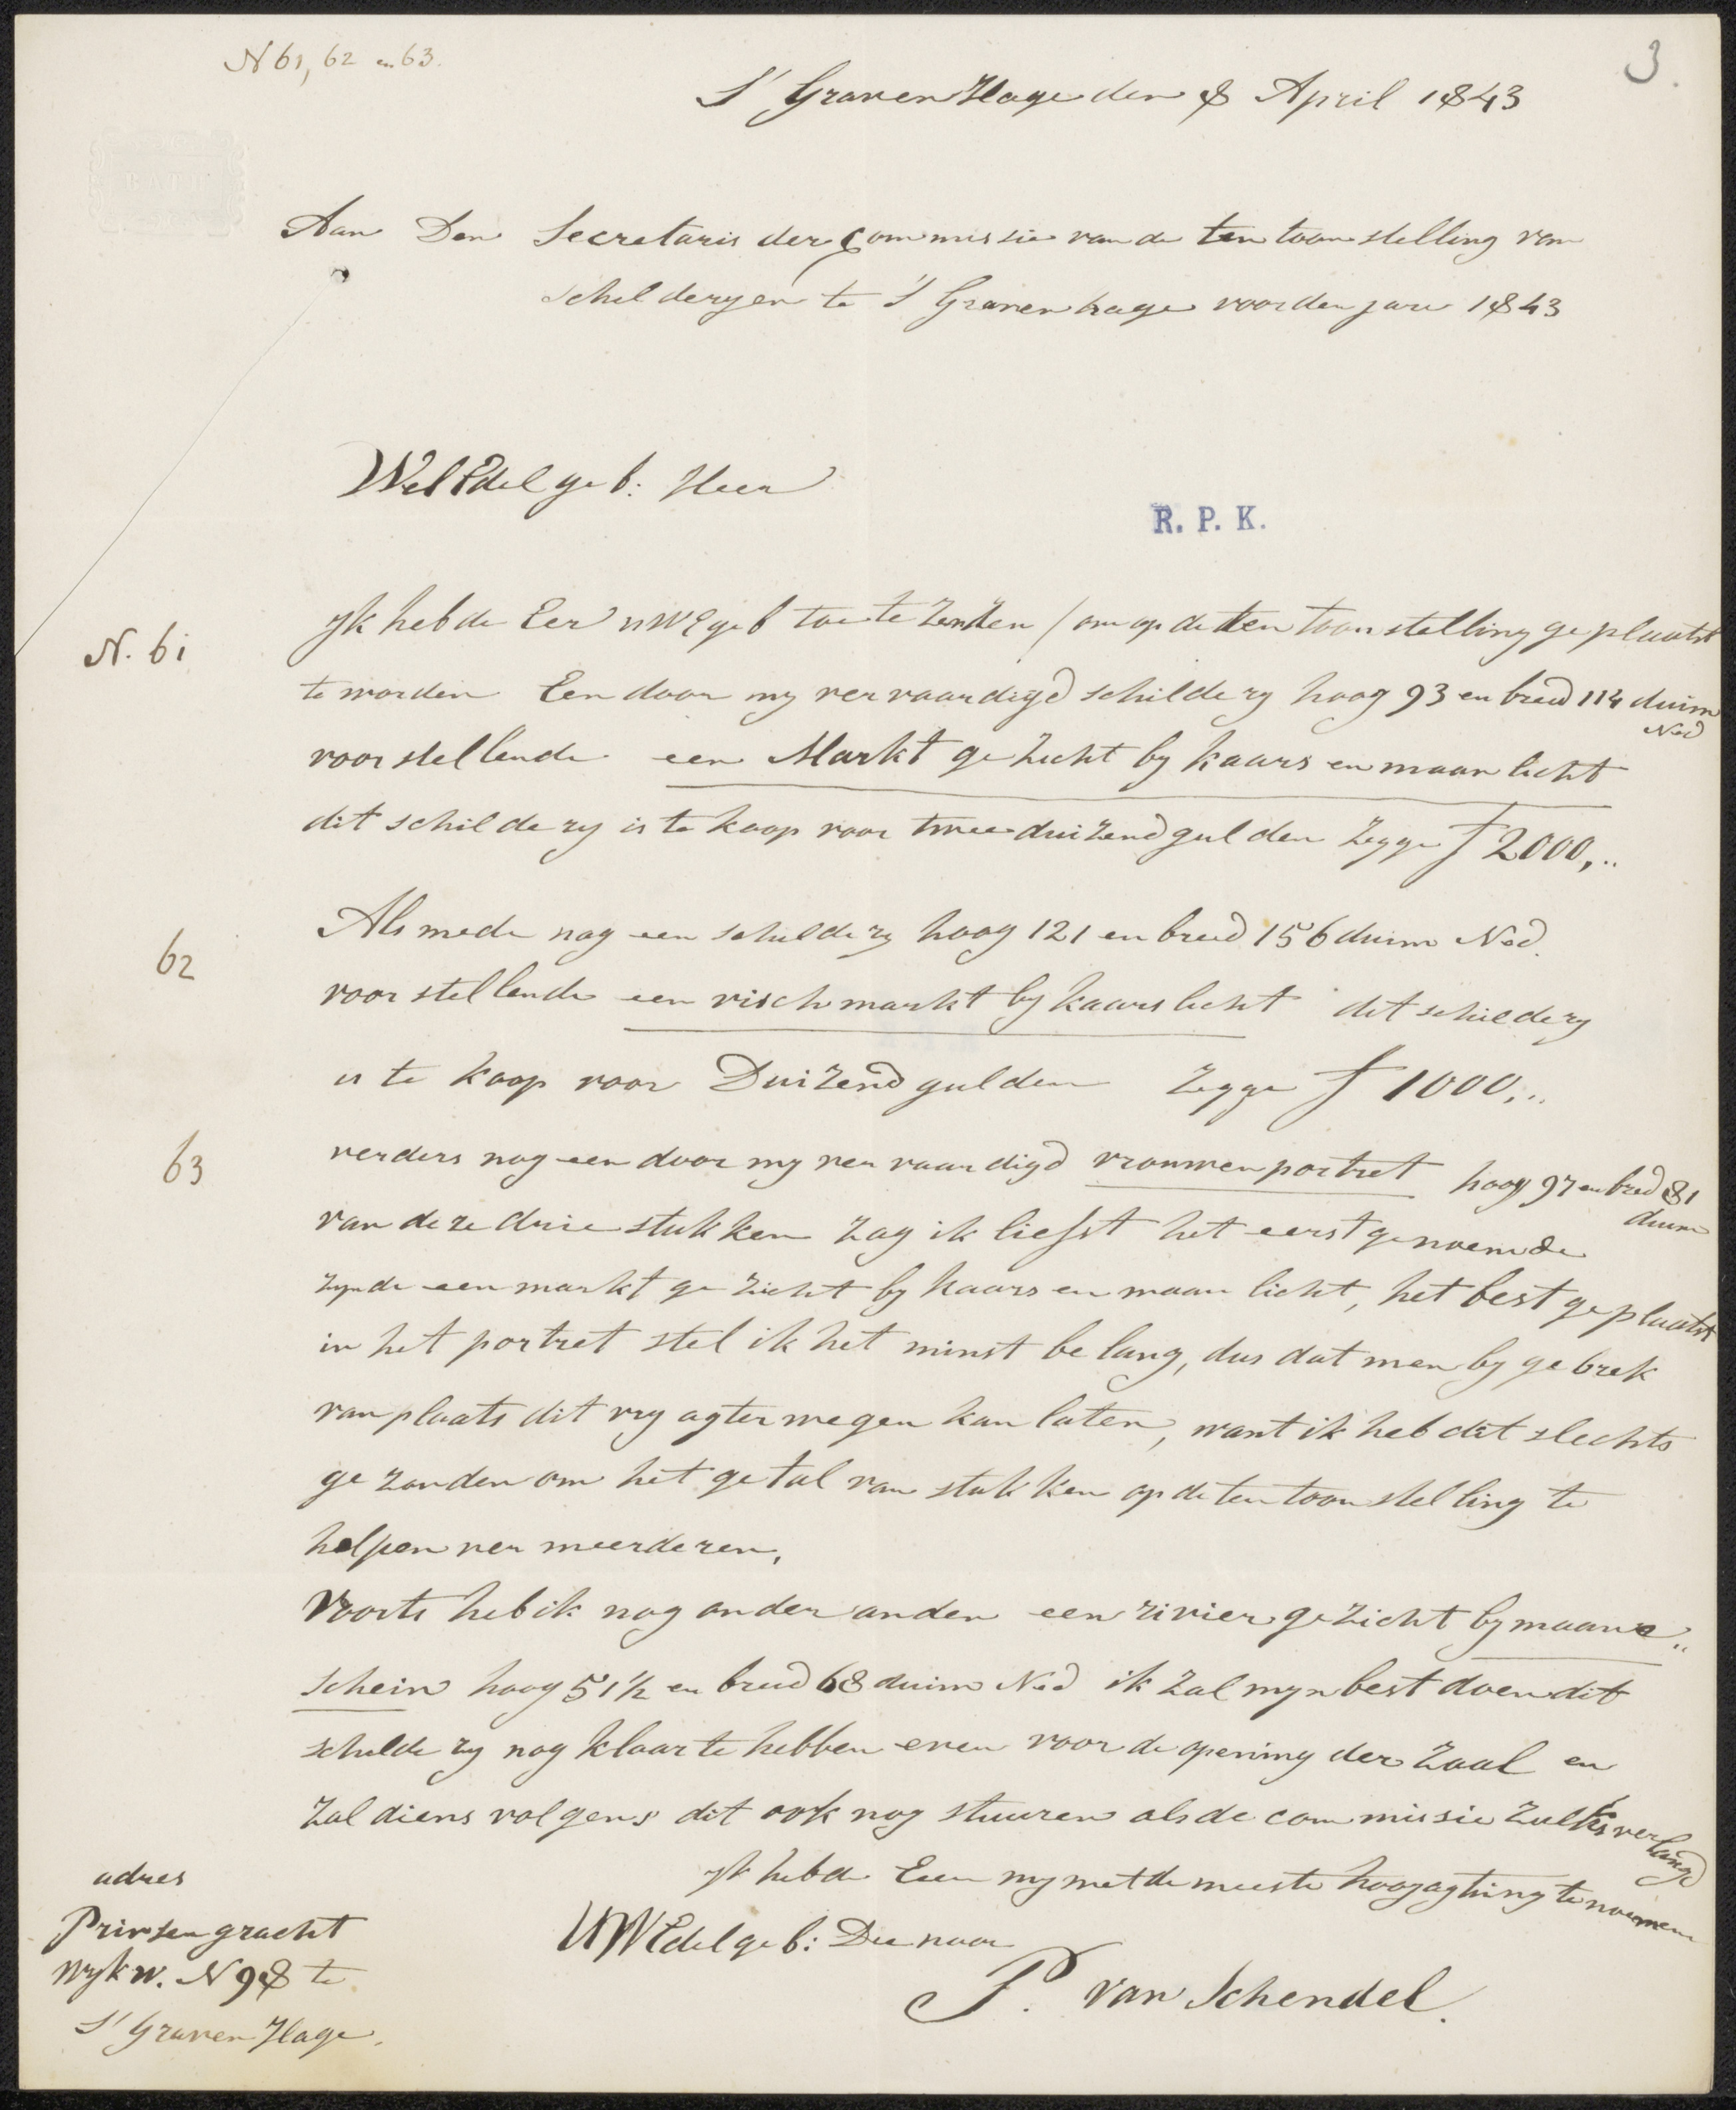 N 61, 62 en 63.
3.
S' GravenHage den 8 April 1843
BATH
Aan Den Secretaris der Commissie van de ten toonstelling van
schilderyen te 'S Gravenhage voor den jare 1843
WelEdelgeb: Heer
R. P. K.
N. 61
Yk heb de Eer UWEgeb toe te zenden / om op de ten toonstelling geplaatst
te worden Een door my vervaardigd schildery hoog 93 en breed 114 duim
Ned
voorstellende een Markt gezicht by kaars en maan licht
dit schildery is te koop voor twee duizend gulden zegge f 2000,..
62
Alsmede nog een schildery hoog 121 en breed 156 duim Ned.
voorstellende een vischmarkt by kaarslicht dit schildery
is te koop voor Duizend gulden zegge f 1000,..
63
verders nog een door my vervaardigd vrouwenportret hoog 97 en breed 81
duim
van deze drie stukken zag ik liefst het eerstgenoemde
zynde een markt gezicht by kaars en maan licht, het best geplaatst
in het portret stel ik het minst belang, dus dat men by gebrek
van plaats dit vry agterwegen kan laten, want ik heb dit slechts
gezonden om het getal van stukken op de tentoonstelling te
helpen vermeerderen,
Voorts heb ik nog onder anden een riviergezicht by maane..
schein hoog 51 1/2 en breed 68 duim Ned ik zal myn best doen dit
schildery nog klaar te hebben even voor de opening der zaal en
zal diens volgens dit ook nog stuuren als de commissie zulks verlangd
Yk heb de Eer my met de meeste hoogagting te noemen
UWEdelgeb: Dienaar
P. van Schendel.
adres
Prinsengracht
wyk W. N 98 te
S' GravenHage.